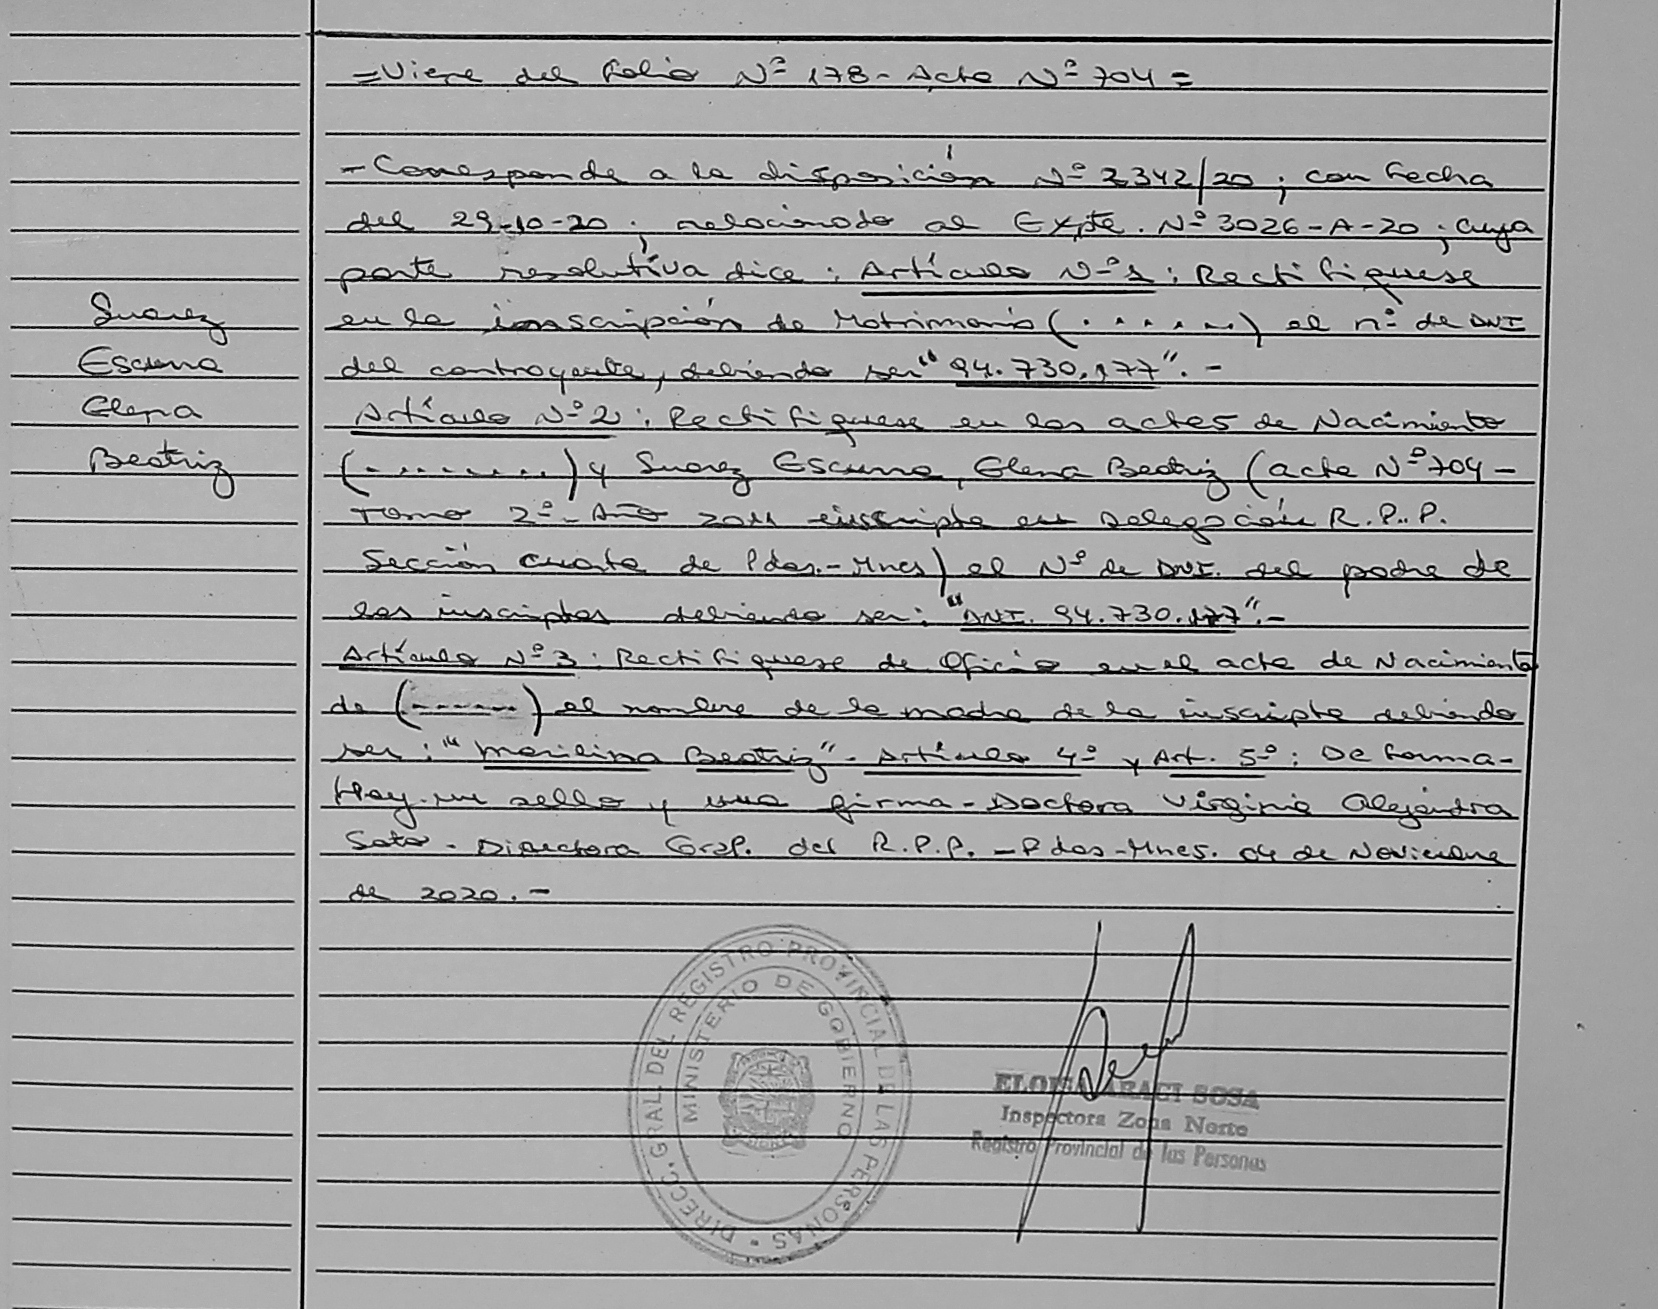 =Viene del Folio Nº 178 - Acta Nº 704 =
- Corresponde a la disposición Nº 2342/20; con Fecha
del 29-10-20; relacionado al Expte. Nº 3026-A-20; cuya
parte resolutiva dice: Artículo Nº 1: Rectifiquese
en la inscripción de Matrimonio (. . . . . .) el nº de DNI
del contrayente, debiendo ser "94.730.177". -
Artículo Nº 2: Rectifiquese en las actas de Nacimiento
(. . . . . . . .) y Suarez Escurra, Elena Beatriz (acta Nº 704 -
Tomo 2º - Año 2011 inscripta en Delegación R.P.P.
Sección Cuarta de Pdas.-Mnes) el Nº de DNI. del padre de
las inscriptas debiendo ser: "DNI. 94.730.177".-
Artículo Nº 3: Rectifiquese de Oficio en el acta de Nacimiento
de (.......) el nombre de la madre de la inscripta debiendo
ser: "Marilina Beatriz" - Artículo 4º y Art. 5º: De Forma-
Hay un sello y una firma - Doctora Virginia Alejandra
Soto - Directora Gral. del R.P.P. - Pdas-Mnes. 04 de Noviembre
de 2020. -
Suarez
Escurra
Elena
Beatriz
DIRECC. GRAL. DEL REGISTRO PROVINCIAL DE LAS PERSONAS
MINISTERIO DE GOBIERNO
ARACI SOSA
Inspectora Zona Norte
Registro Provincial de las Personas